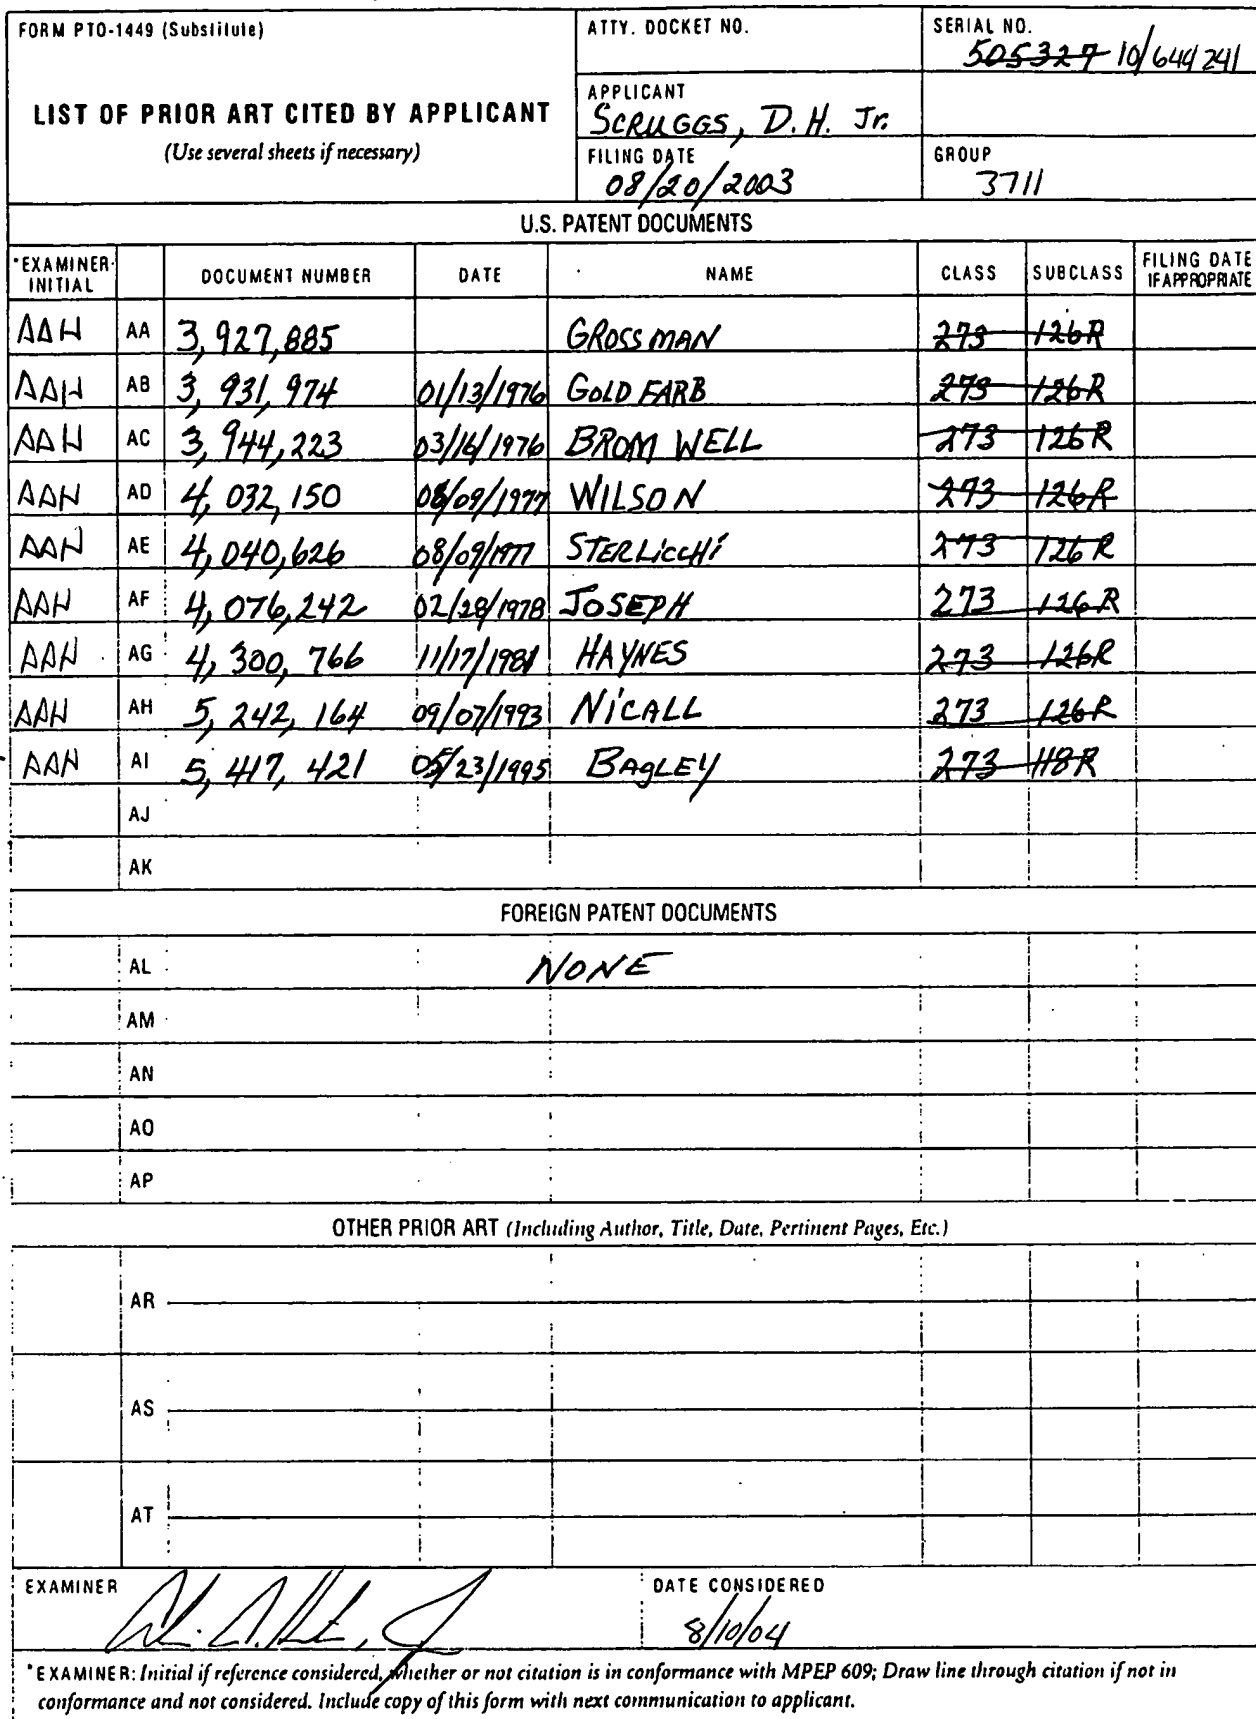 FORM PTO-1449 (Substitute)
ATTY. DOCKET NO.
SERIAL NO.
505327 10/644241
LIST OF PRIOR ART CITED BY APPLICANT
(Use several sheets if necessary)
APPLICANT
SCRUGGS, D. H. Jr.
FILING DATE
08/20/2003
GROUP
3711
U.S. PATENT DOCUMENTS
*EXAMINER INITIAL DOCUMENT NUMBER DATE NAME CLASS SUBCLASS FILING DATE IF APPROPRIATE
AAH AA 3,927,885 GROSSMAN 273 126R
AAH AB 3,931,974 01/13/1976 GOLDFARB 273 126R
AAH AC 3,944,223 03/16/1976 BROMWELL 273 126R
AAH AD 4,032,150 /09/1977 WILSON 273 126R
AAH AE 4,040,626 08/09/1977 STERLiCCHi 273 126R
AAH AF 4,076,242 02/28/1978 JOSEPH 273 126R
AAH AG 4,300,766 11/17/1981 HAYNES 273 126R
AAH AH 5,242,164 09/07/1993 NiCALL 273 126R
AAH AI 5,417,421 05/23/1995 BAGLEY 273 118R
AJ
AK
FOREIGN PATENT DOCUMENTS
AL NONE
AM
AN
AO
AP
OTHER PRIOR ART (Including Author, Title, Date, Pertinent Pages, Etc.)
AR
AS
AT
EXAMINER
DATE CONSIDERED
8/10/04
*EXAMINER: Initial if reference considered, whether or not citation is in conformance with MPEP 609; Draw line through citation if not in
conformance and not considered. Include copy of this form with next communication to applicant.